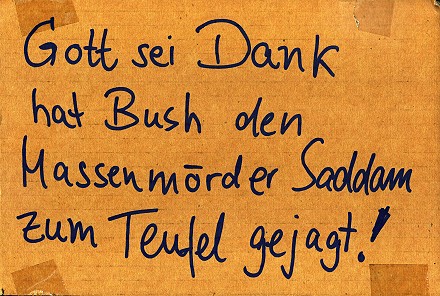 Gott sei Dank
hat Bush den
Massenmörder Saddam
zum Teufel gejagt!